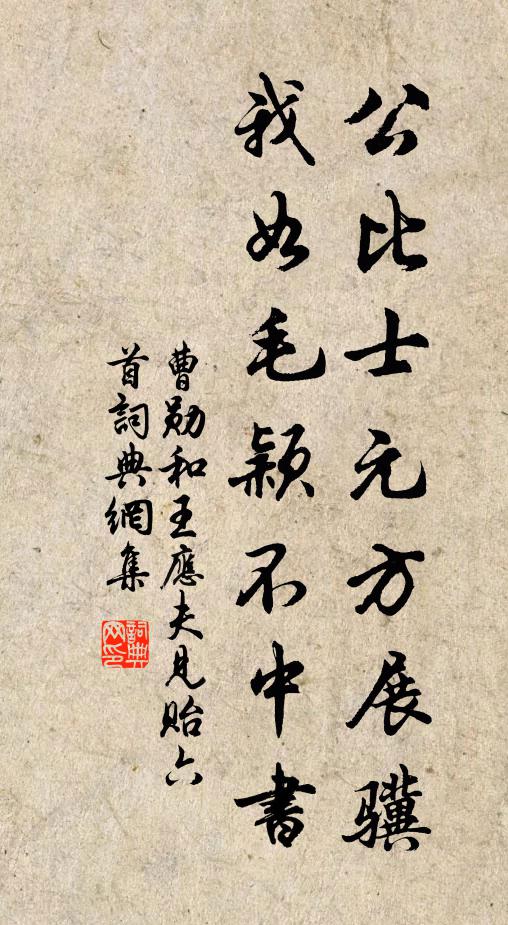 公比士元方展骥
我如毛颖不中書
曹勛和王應夫見貽六
首詞典網集
詞典網印